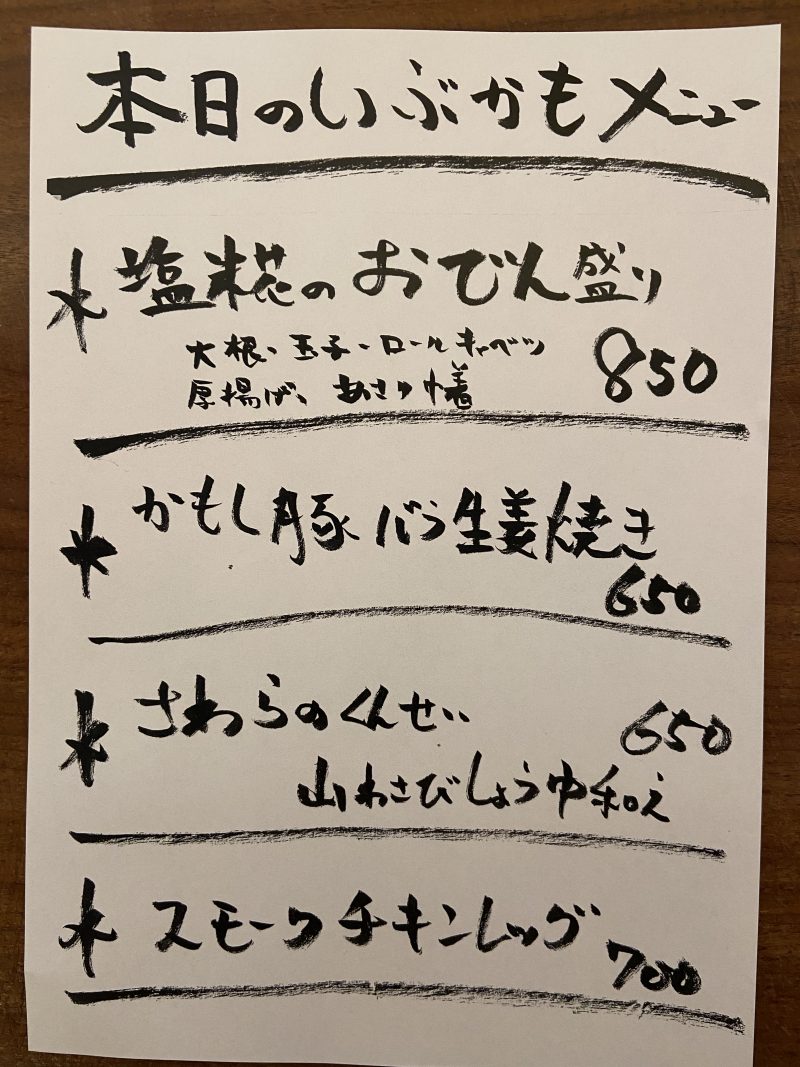 本日のいぶかもメニュー
* 塩糀のおでん盛り
大根・玉子・ロールキャベツ
厚揚げ、あさり巾着 850
* かもし豚バラ生姜焼き
650
* さわらのくんせい 650
山わさびしょうゆ和え
* スモークチキンレッグ
700